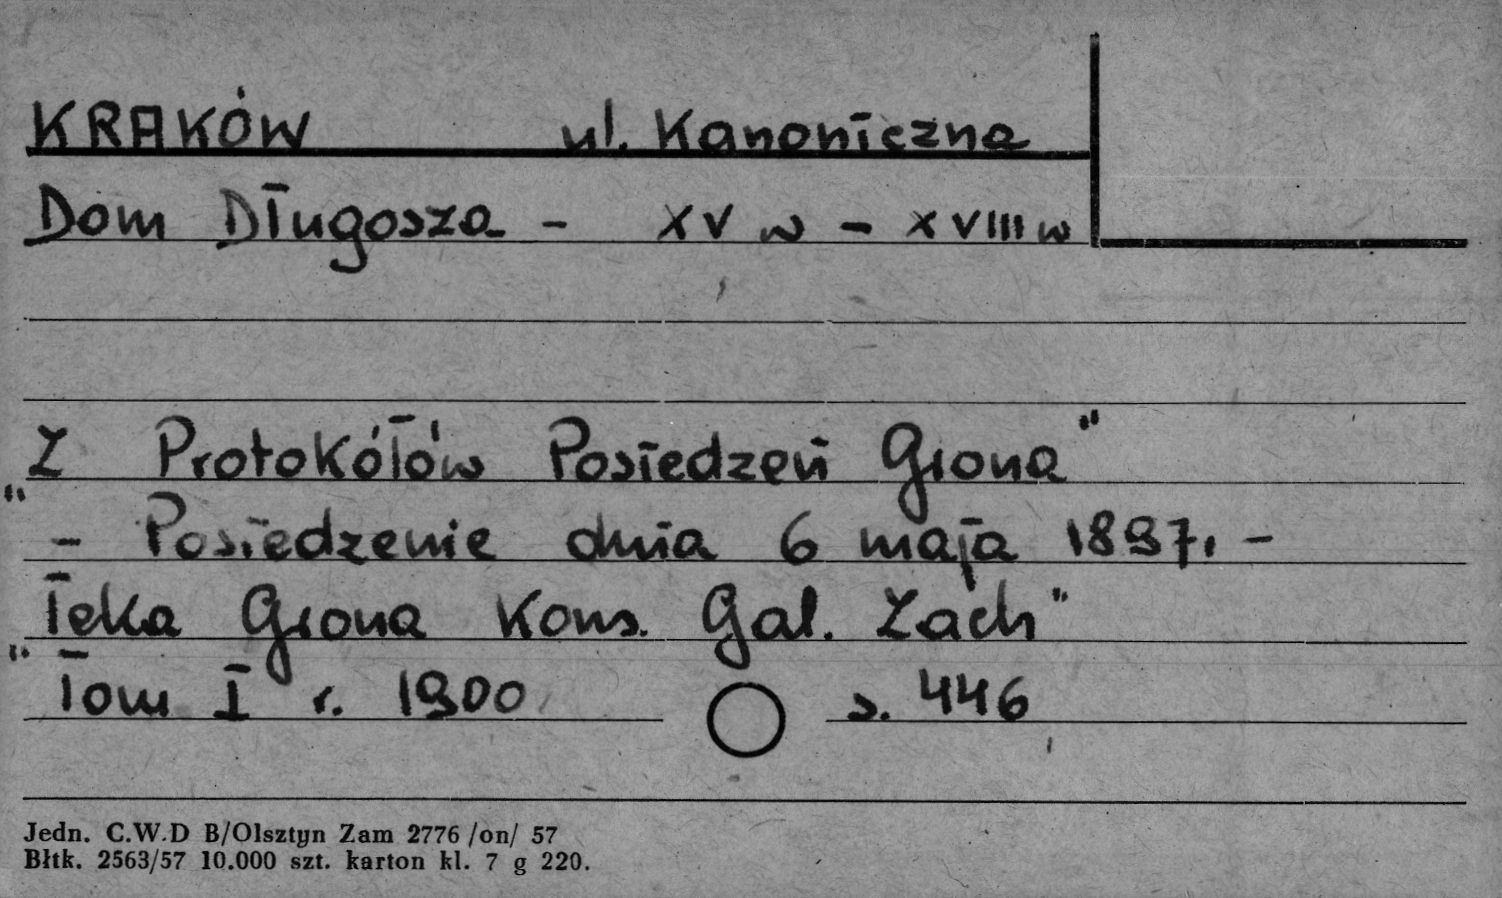 KRAKÓW ul. Kanoniczna
Dom Długosza - XV w - XVIII w
Z Protokółów Posiedzeń Grona"
" - Posiedzenie dnia 6 maja 1897. -
Teka Grona Kons. Gal. Zach"
" Tom I r. 1900 s. 446
Jedn. C.W.D B/Olsztyn Zam 2776 /on/ 57
Błtk. 2563/57 10.000 szt. karton kl. 7 g 220.